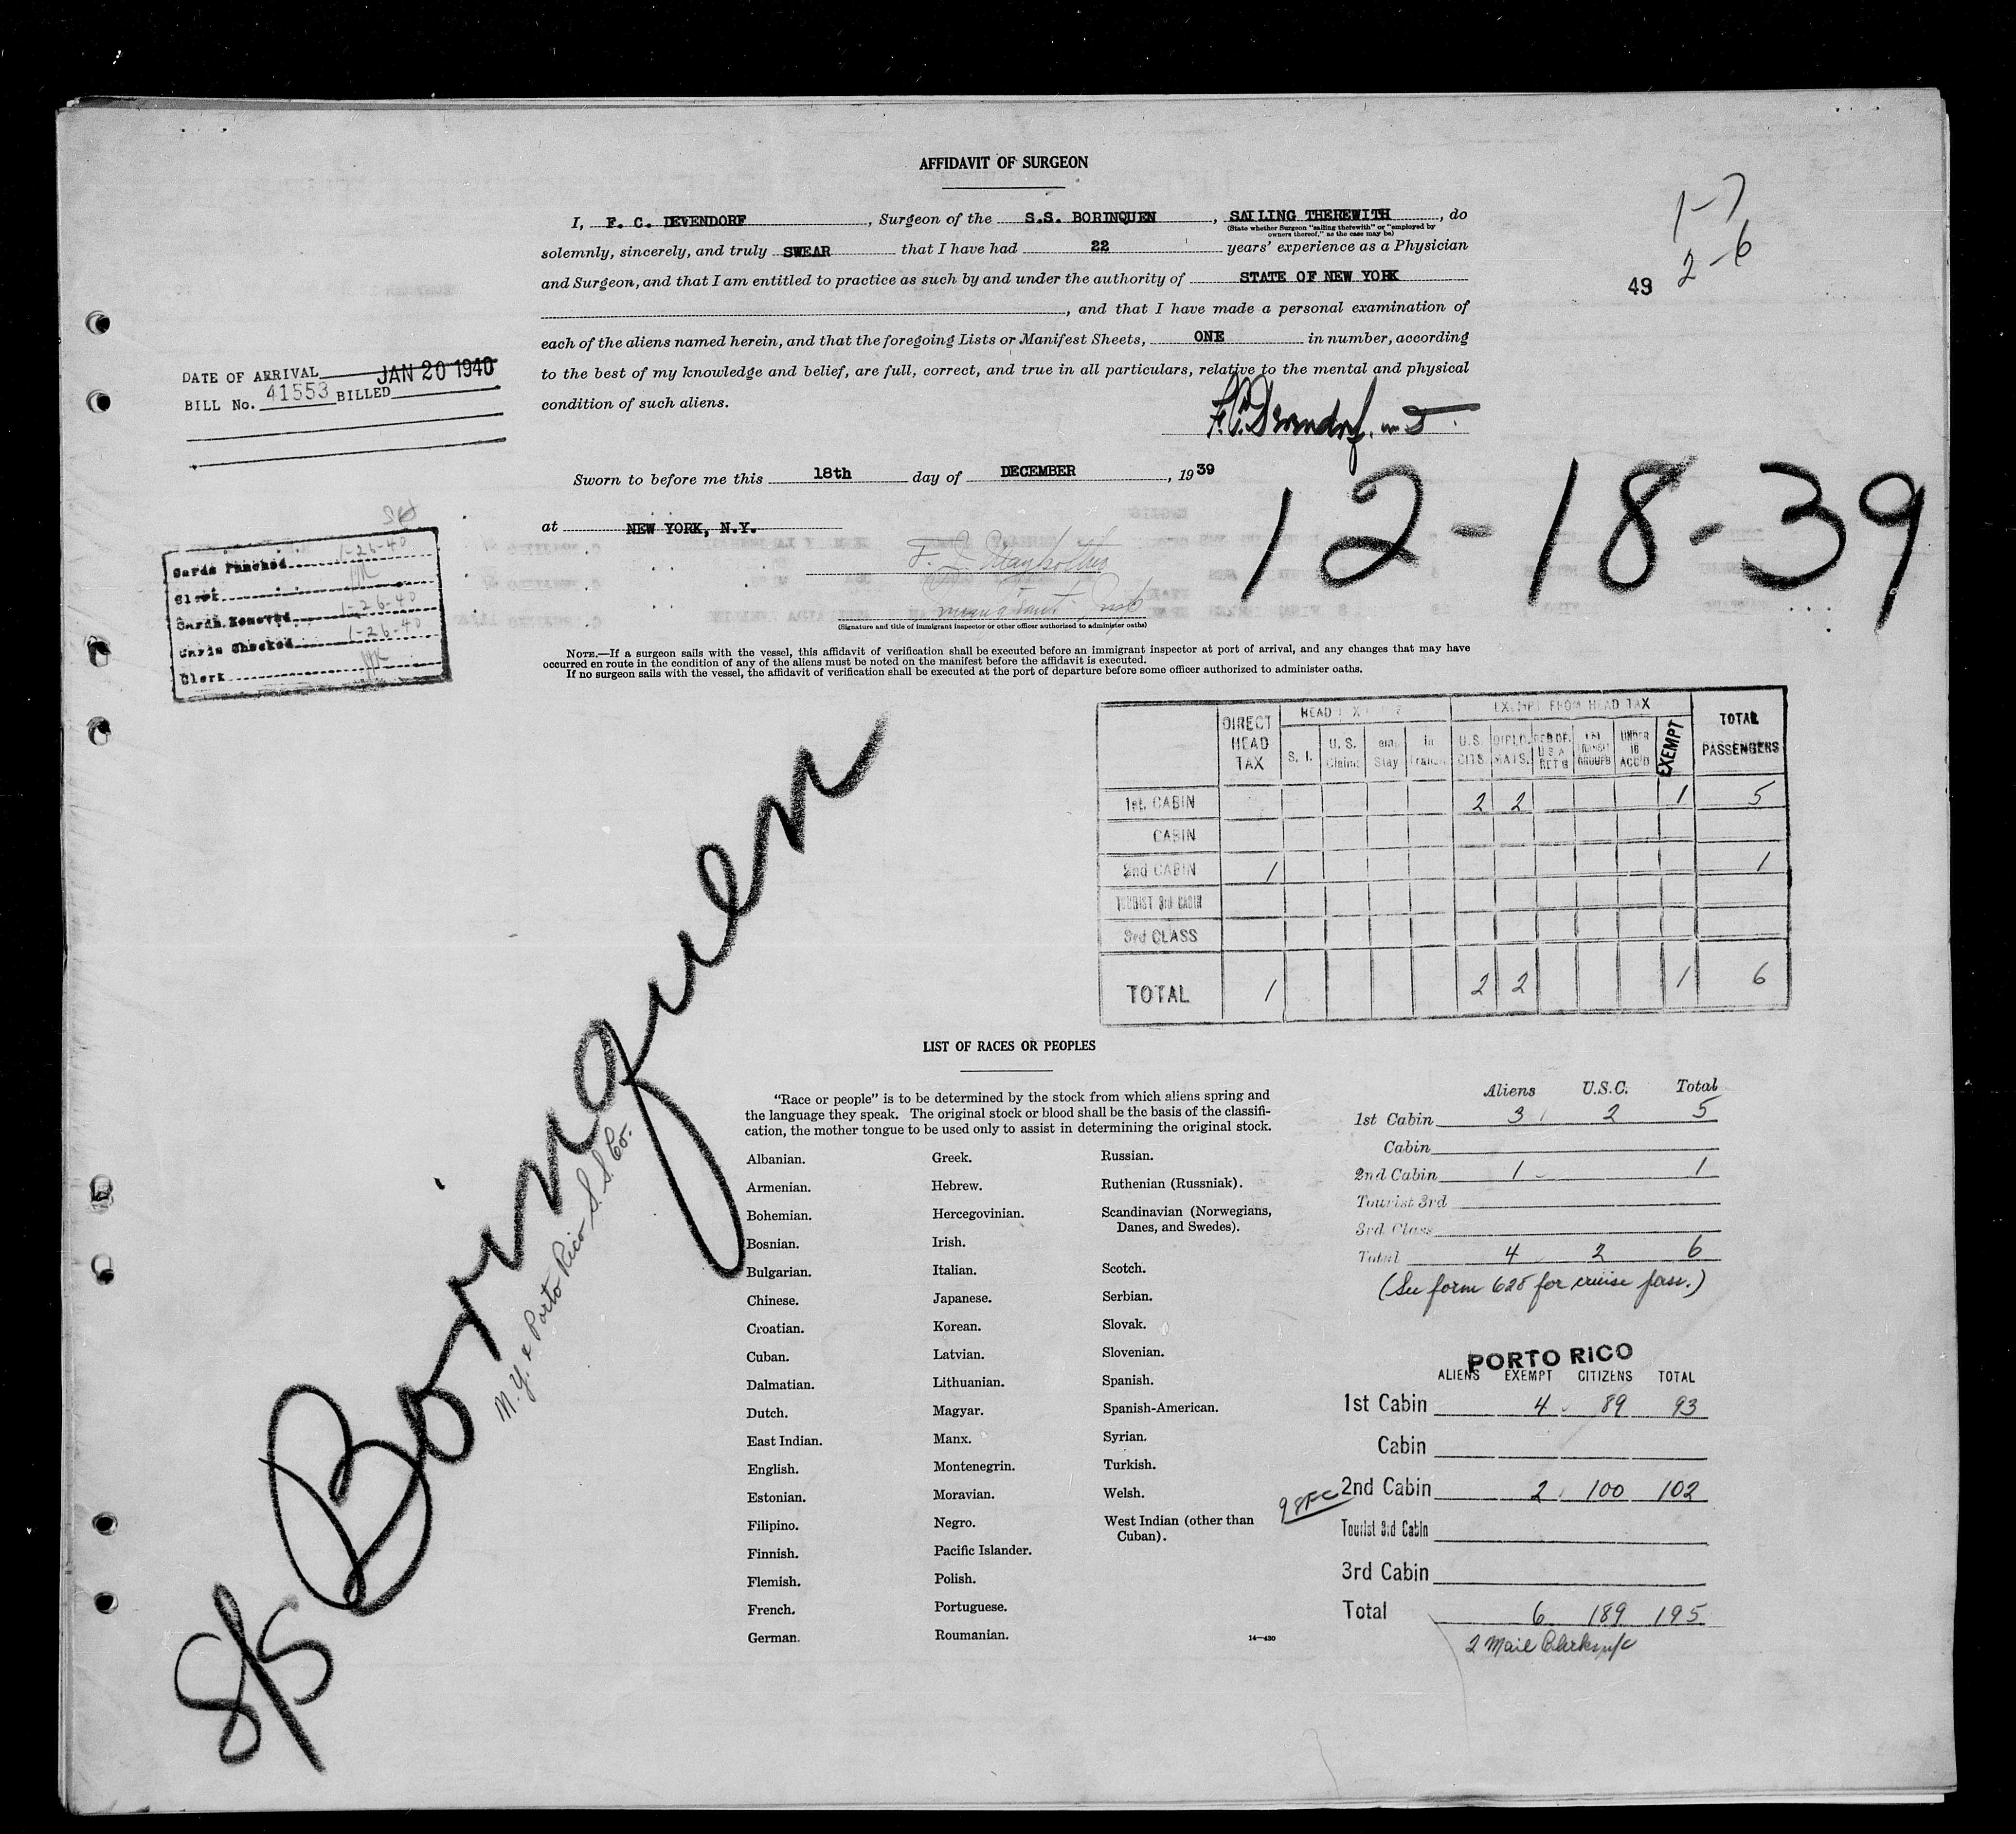 AFFIDAVIT OF SURGEON
I, F. C. DEVENDORF, Surgeon of the S.S. BORINQUEN, SAILING THEREWITH, do
(State whether Surgeon "sailing therewith" or "employed by
owners thereof," as the case may be)
solemnly, sincerely, and truly SWEAR that I have had 22 years' experience as a Physician
and Surgeon, and that I am entitled to practice as such by and under the authority of STATE OF NEW YORK
, and that I have made a personal examination of
each of the aliens named herein, and that the foregoing Lists or Manifest Sheets, ONE in number, according
to the best of my knowledge and belief, are full, correct, and true in all particulars, relative to the mental and physical
condition of such aliens.
1-7
2-6
49
DATE OF ARRIVAL JAN 20 1940
BILL No. 41553 BILLED
F.C. Devendorf. M D.
Sworn to before me this 18th day of DECEMBER, 1939
at NEW YORK, N.Y.
12-18-39
Immigrant Insp
(Signature and title of immigrant inspector or other officer authorized to administer oaths)
Cards Punched 1-26-40
Clerk
Cards Removed 1-26-40
Cards Checked 1-26-40
Clerk
NOTE.—If a surgeon sails with the vessel, this affidavit of verification shall be executed before an immigrant inspector at port of arrival, and any changes that may have
occurred en route in the condition of any of the aliens must be noted on the manifest before the affidavit is executed.
If no surgeon sails with the vessel, the affidavit of verification shall be executed at the port of departure before some officer authorized to administer oaths.
DIRECT HEAD TAX HEAD TAX EXEMPT FROM HEAD TAX TOTAL PASSENGERS
S. I. U. S. Claims Stay U.S. CITS. DIPLO MATS. UNDER 16 EXEMPT
1st. CABIN 2 2 1 5
CABIN
2nd CABIN 1 1
TOURIST 3rd CABIN
3rd CLASS
TOTAL 1 2 2 1 6
S/S Borinquen
N.Y. & Porto Rico S.S. Co.
LIST OF RACES OR PEOPLES
"Race or people" is to be determined by the stock from which aliens spring and
the language they speak. The original stock or blood shall be the basis of the classifi-
cation, the mother tongue to be used only to assist in determining the original stock.
Albanian.
Armenian.
Bohemian.
Bosnian.
Bulgarian.
Chinese.
Croatian.
Cuban.
Dalmatian.
Dutch.
East Indian.
English.
Estonian.
Filipino.
Finnish.
Flemish.
French.
German.
Greek.
Hebrew.
Hercegovinian.
Irish.
Italian.
Japanese.
Korean.
Latvian.
Lithuanian.
Magyar.
Manx.
Montenegrin.
Moravian.
Negro.
Pacific Islander.
Polish.
Portuguese.
Roumanian.
Russian.
Ruthenian (Russniak).
Scandinavian (Norwegians,
Danes, and Swedes).
Scotch.
Serbian.
Slovak.
Slovenian.
Spanish.
Spanish-American.
Syrian.
Turkish.
Welsh.
West Indian (other than
Cuban).
14—430
Aliens U.S.C. Total
1st Cabin 3 2 5
Cabin
2nd Cabin 1 1
Tourist 3rd
3rd Class
Total 4 2 6
(See form 628 for cruise pass.)
PORTO RICO
ALIENS EXEMPT CITIZENS TOTAL
1st Cabin 4 89 93
Cabin
2nd Cabin 2 100 102
Tourist 3rd Cabin
3rd Cabin
Total 6 189 195
2 Mail Clerks